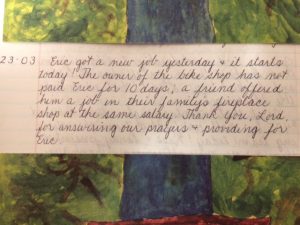 23-03 Eric got a new job yesterday & it starts
today! The owner of the bike shop has not
paid Eric for 10 days, a friend offered
him a job in their family's fireplace
shop at the same salary. Thank you, Lord,
for answering our prayers & providing for
Eric